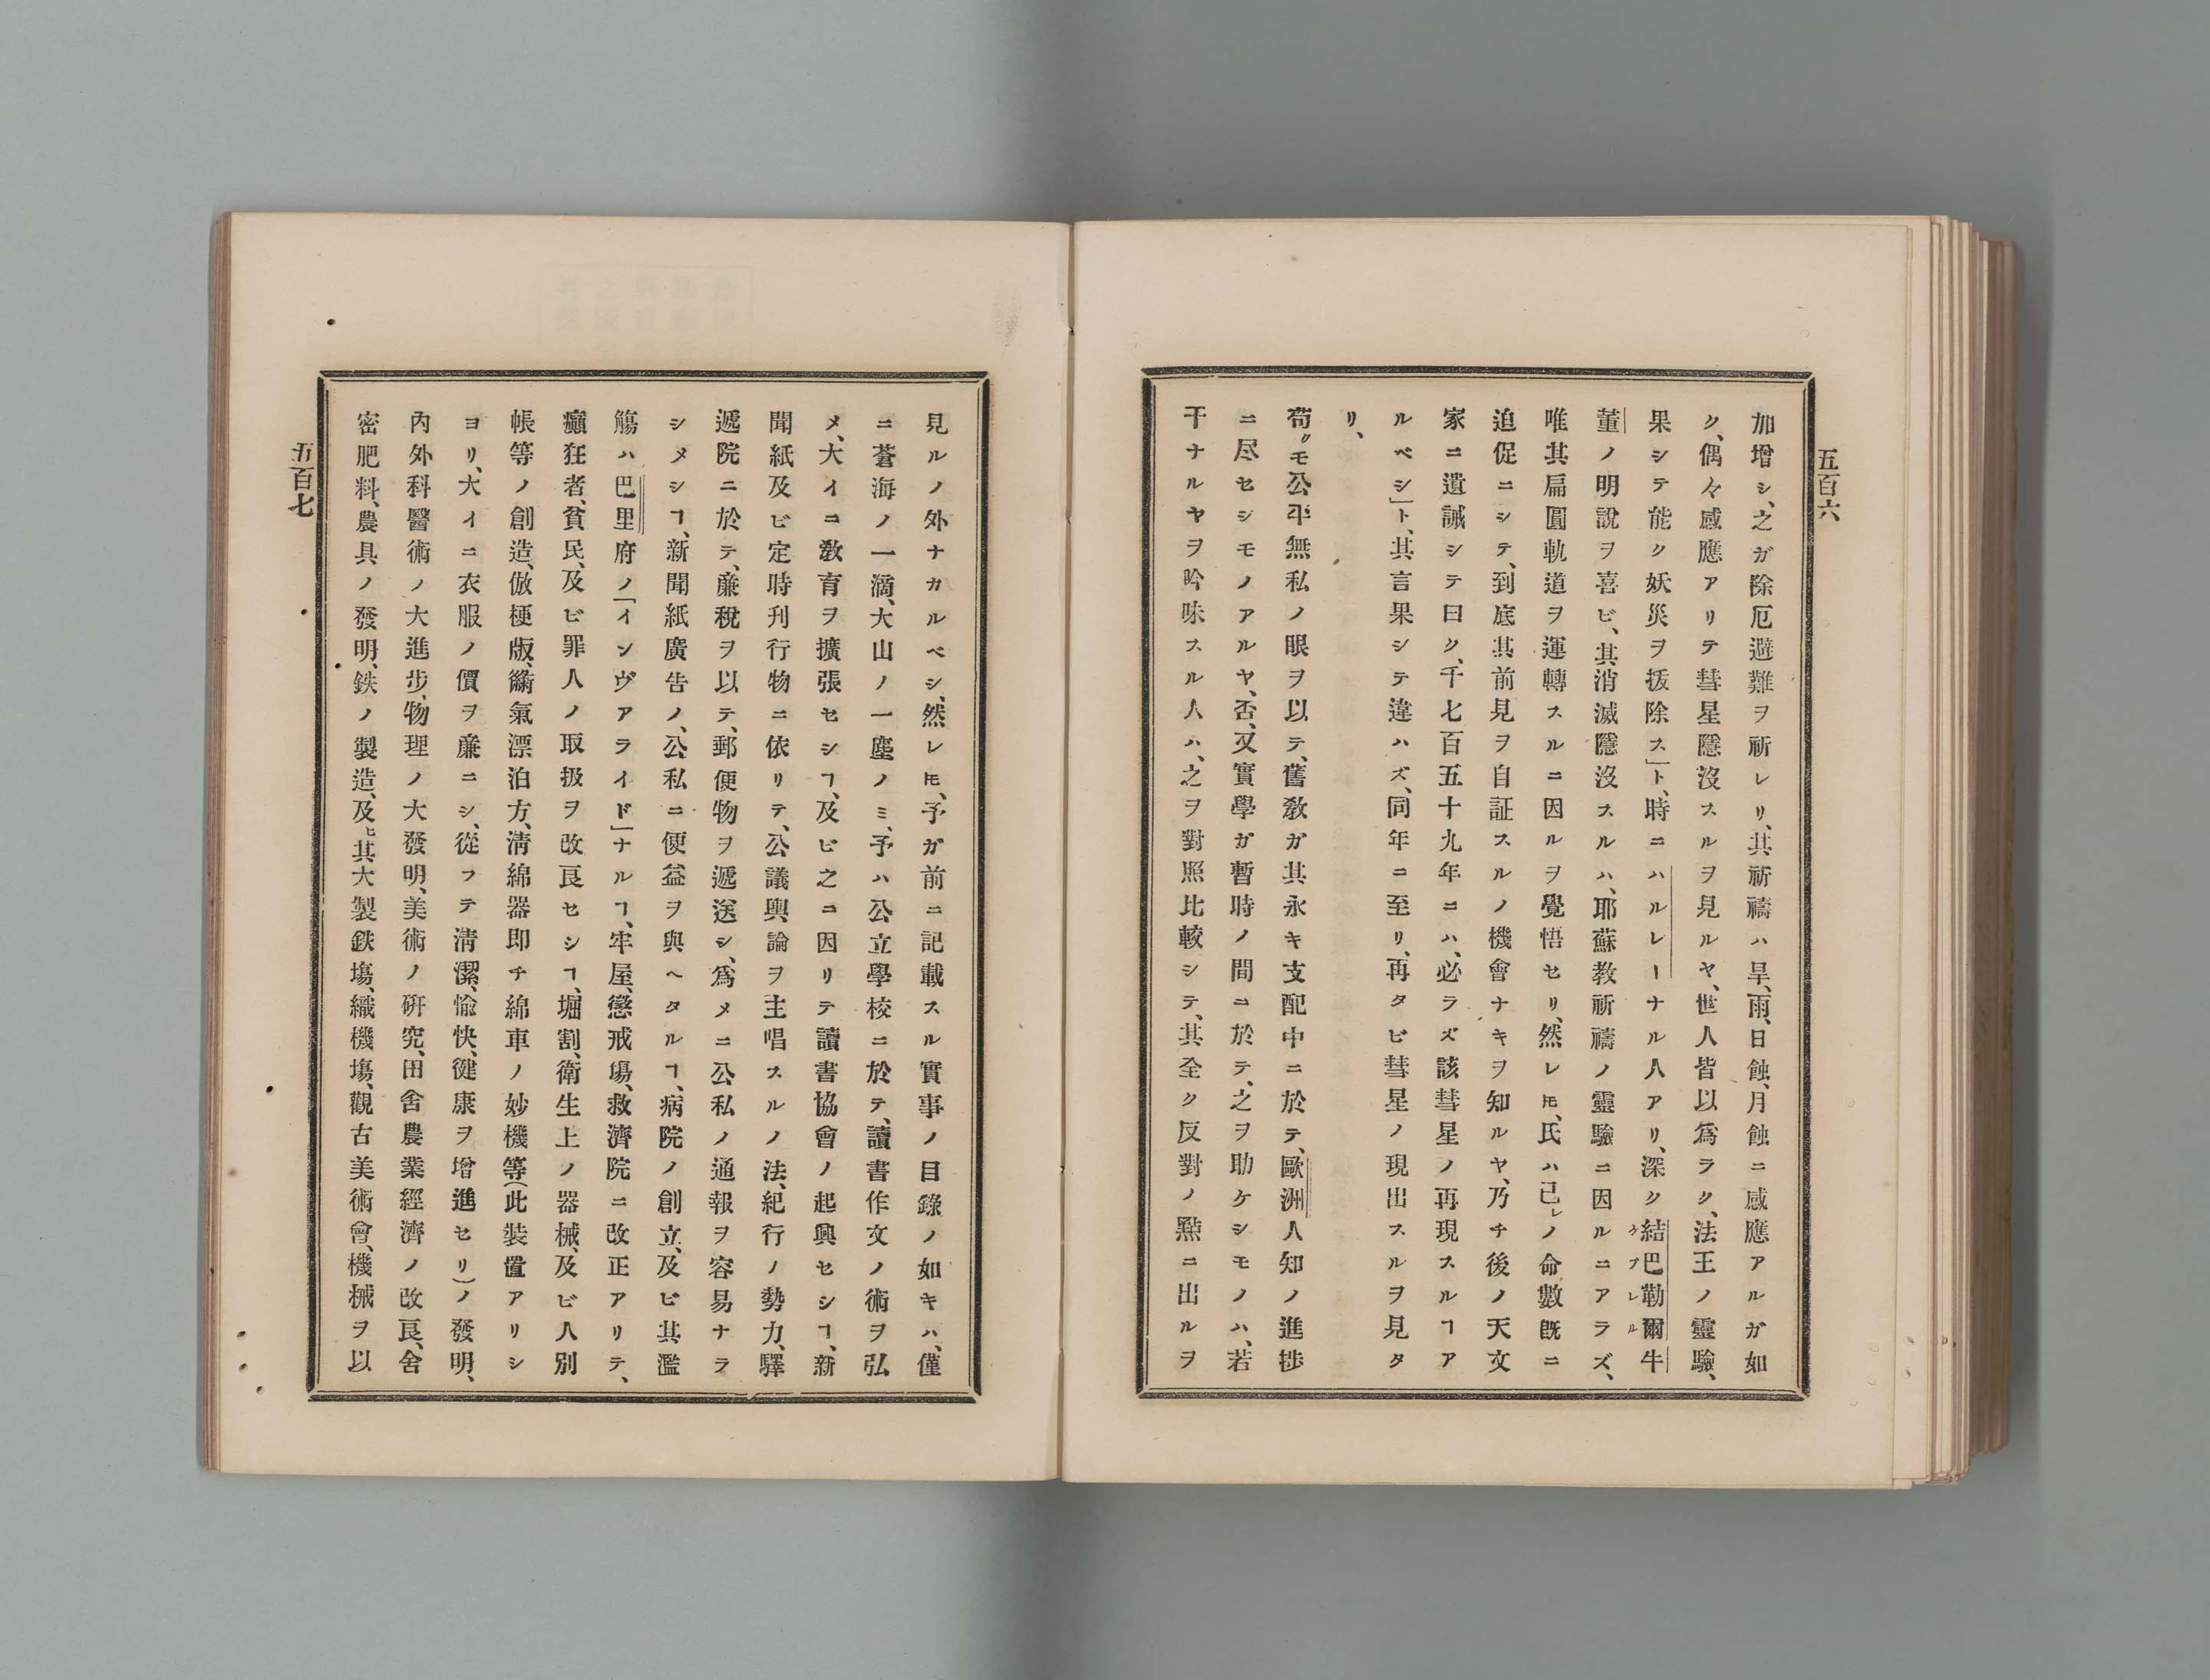 五百六
加增シ、之ガ除厄避難ヲ祈レリ、其祈禱ハ旱、雨、日蝕、月蝕ニ感應アルガ如
ク、偶々感應アリテ彗星隱沒スルヲ見ルヤ、世人皆以爲ラク、法王ノ靈驗、
果シテ能ク妖災ヲ拔除ス」ト、時ニハルレーナル人アリ、深ク結巴勒爾牛
ケプレル
董ノ明說ヲ喜ビ、其消滅隱沒スルハ、耶蘇教祈禱ノ靈驗ニ因ルニアラズ、
唯其扁圓軌道ヲ運轉スルニ因ルヲ覺悟セリ、然レ𪜈、氏ハ己レノ命數既ニ
迫促ニシテ、到底其前見ヲ自証スルノ機會ナキヲ知ルヤ、乃チ後ノ天文
家ニ遺誡シテ曰ク、千七百五十九年ニハ、必ラズ該彗星ノ再現スルヿア
ルベシ」ト、其言果シテ違ハズ、同年ニ至リ、再タビ彗星ノ現出スルヲ見タ
リ、
苟クモ公平無私ノ眼ヲ以テ、舊敎ガ其永キ支配中ニ於テ、歐洲人知ノ進捗
ニ尽セシモノアルヤ、否、又實學ガ暫時ノ間ニ於テ、之ヲ助ケシモノハ、若
干ナルヤヲ吟味スル人ハ、之ヲ對照比較シテ、其全ク反對ノ點ニ出ルヲ
五百七
見ルノ外ナカルベシ、然レ𪜈、予ガ前ニ記載スル實事ノ目錄ノ如キハ、僅
ニ蒼海ノ一滴、大山ノ一塵ノミ、予ハ公立學校ニ於テ、讀書作文ノ術ヲ弘
メ、大イニ敎育ヲ擴張セシヿ、及ビ之ニ因リテ讀書協會ノ起興セシヿ、新
聞紙及ビ定時刊行物ニ依リテ、公議輿論ヲ主唱スルノ法、紀行ノ勢力、驛
遞院ニ於テ、廉稅ヲ以テ、郵便物ヲ遞送シ、爲メニ公私ノ通報ヲ容易ナラ
シメシヿ、新聞紙廣告ノ、公私ニ便益ヲ與ヘタルヿ、病院ノ創立、及ビ其濫
觴ハ巴里府ノ「インヴアライド」ナルヿ、牢屋、懲戒塲、救濟院ニ改正アリテ、
癲狂者、貧民、及ビ罪人ノ取扱ヲ改良セシヿ、堀割、衛生上ノ器械、及ビ人別
帳等ノ創造、倣梗版、瀚氣漂泊方、淸綿器即チ綿車ノ妙機等(此裝置アリシ
ヨリ、大イニ衣服ノ價ヲ廉ニシ、從フテ淸潔、愉快、健康ヲ增進セリ)ノ發明、
內外科醫術ノ大進步、物理ノ大發明、美術ノ硏究、田舍農業經濟ノ改良、舍
密肥料、農具ノ發明、鉄ノ製造、及ヒ其大製鉄塲、織機塲、觀古美術會、機械ヲ以